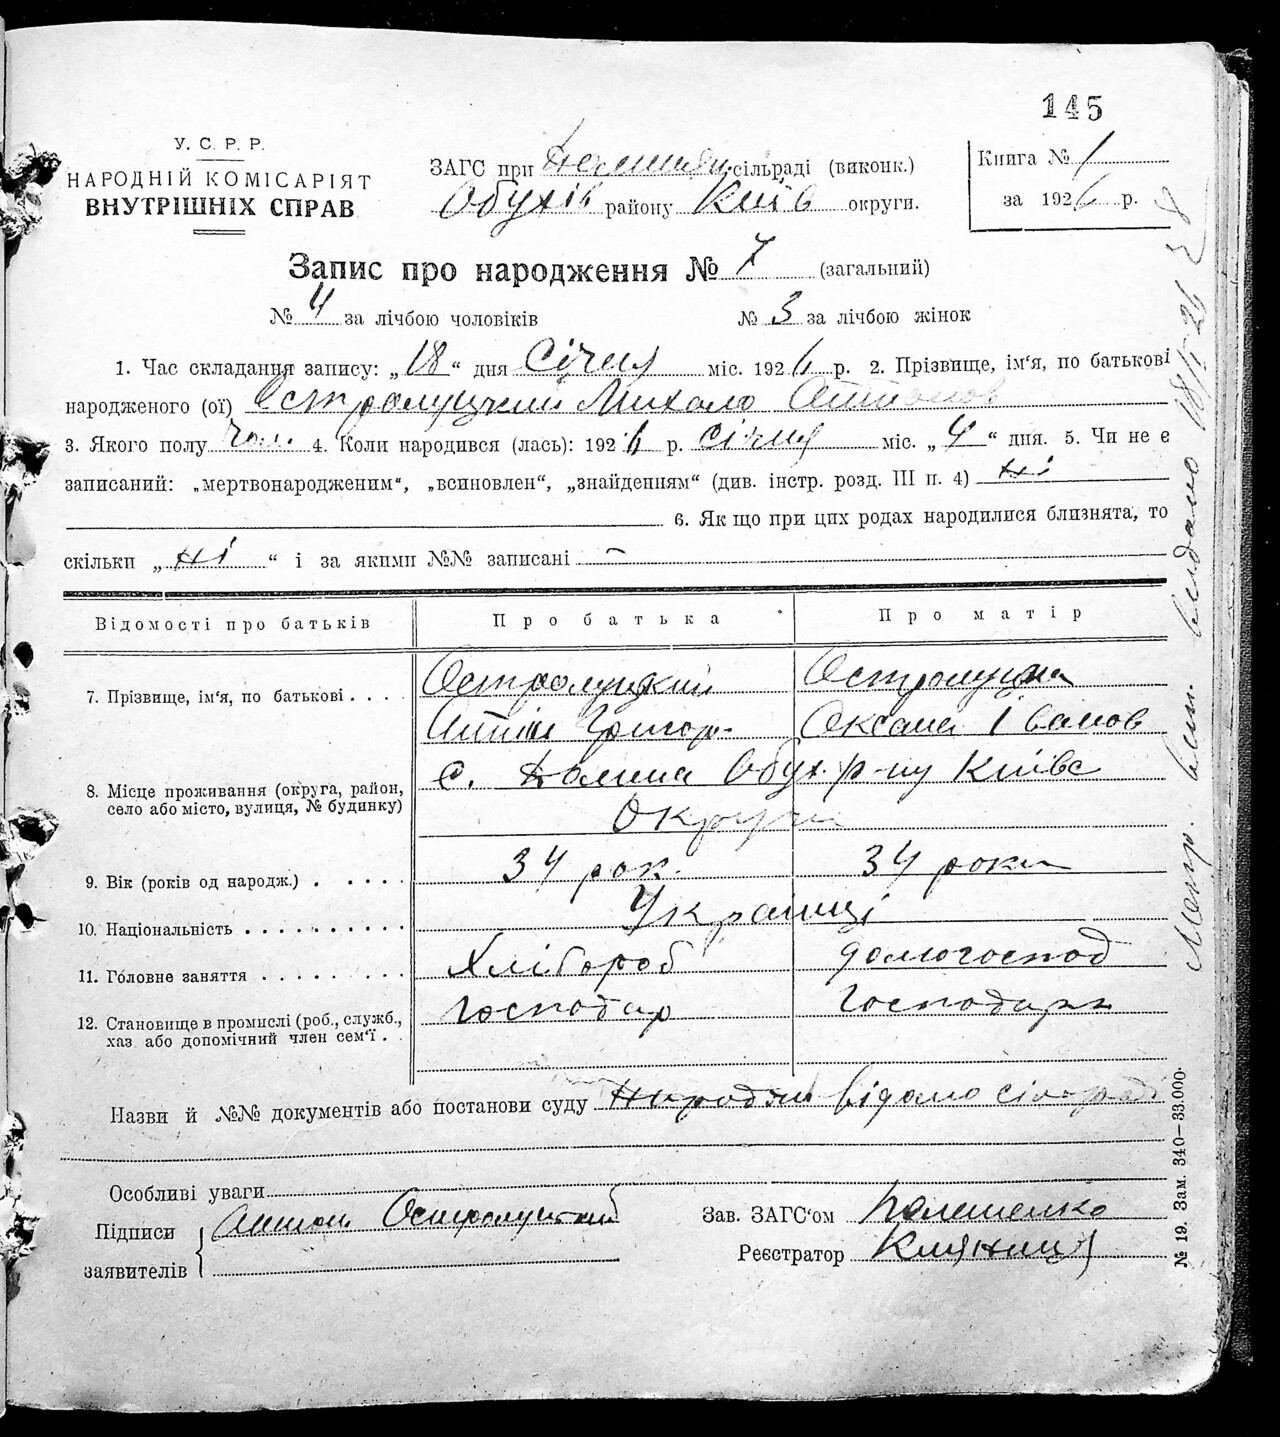 145
У. С. Р. Р.
НАРОДНІЙ КОМІСАРІЯТ
ВНУТРІШНІХ СПРАВ
ЗАГС при сільраді (виконк.)
Обухів району Київ округи.
Книга № 1
за 1926 р.
Запис про народження № 7 (загальний)
№ 4 за лічбою чоловіків № 3 за лічбою жінок
1. Час складання запису: „18“ дня Січня міс. 1926 р. 2. Прізвище, ім‘я, по батькові
народженого (ої) Остролуцкий Михало Антонов
3. Якого полу чол. 4. Коли народився (лась): 1926 р. січня міс. „4“ дня. 5. Чи не є
записаний: „мертвонародженим“, „всиновлен“, „знайденням“ (див. інстр. розд. III п. 4) ні
6. Як що при цих родах народилися близнята, то
скільки „ні“ і за якими №№ записані –
Відомості про батьків Про батька Про матір
7. Прізвище, ім‘я, по батькові . . . . Остролуцкий Остролуцка
Антін Григор. Оксана Іванов
8. Місце проживання (округа, район, село або місто, вулиця, № будинку) с. Долина Обух. р-ну Київс
Округи
9. Вік (років од народж.) . . . . . 34 рок. 34 роки
10. Національність . . . . . . . . . . Українці
11. Головне заняття . . . . . . . . . Хлібороб домогоспод
12. Становище в промислі (роб., службс., хаз. або допомічний член сем‘ї . . Господар Господарк
Назви й №№ документів або постанови суду відомо сільраді
Особливі уваги
Підписи Антон Остролуцкий
заявителів
Зав. ЗАГС‘ом
Реєстратор
№ 19. Зам. 340—33.000.
Метр. вип. видано 18/I 26